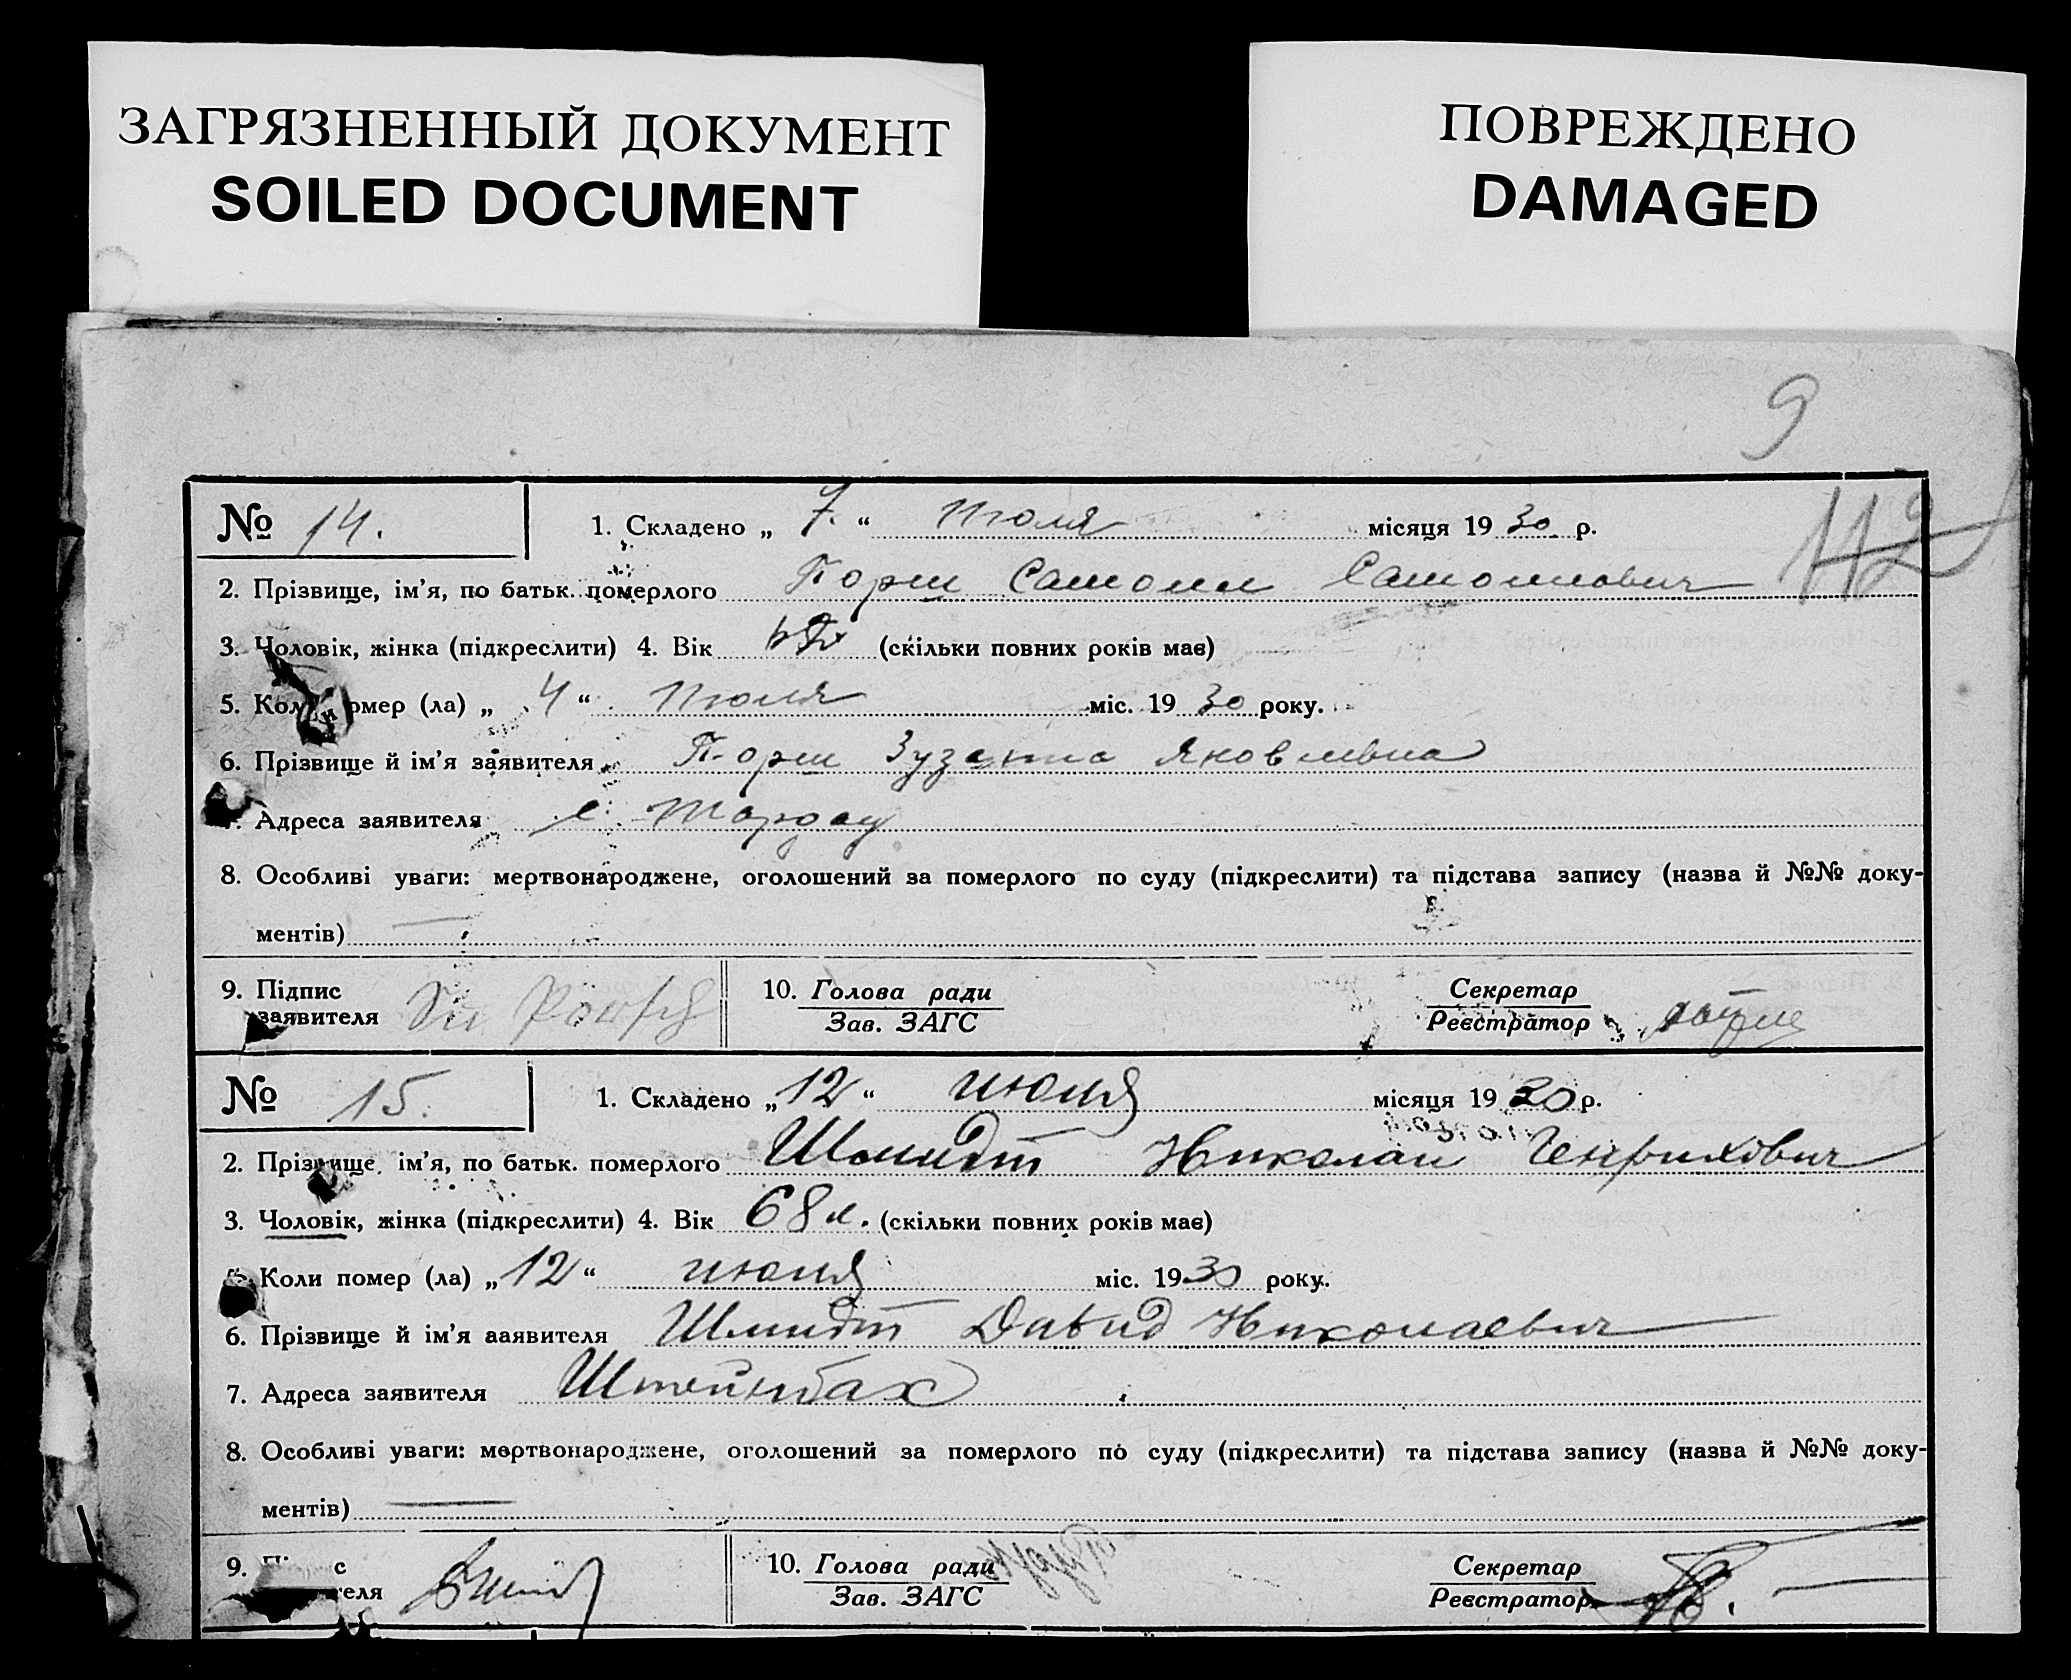 ЗАГРЯЗНЕННЫЙ ДОКУМЕНТ
SOILED DOCUMENT
ПОВРЕЖДЕНО
DAMAGED
9
112
№ 14. 1. Складено „ 7. “ Июля місяця 19 30 р.
2. Прізвище, ім'я, по батьк. померлого Порш Самоил Самоилович
3. Чоловік, жінка (підкреслити) 4. Вік (скільки повних років має)
5. Коли помер (ла) „ 4 “ Июля міс. 19 30 року.
6. Прізвище й ім'я заявителя Порш Зузанна Яковлевна
Адреса заявителя с
8. Особливі уваги: мертвонароджене, оголошений за померлого по суду (підкреслити) та підстава запису (назва й №№ доку-
ментів)
9. Підпис заявителя Porsch 10. Голова ради Зав. ЗАГС Секретар Реєстратор
№ 15. 1. Складено „ 12 “ июня місяця 19 30 р.
2. Прізвище, ім'я, по батьк. померлого Шмидт Николай Генрихович
3. Чоловік, жінка (підкреслити) 4. Вік 68 л. (скільки повних років має)
Коли помер (ла) „ 12 “ июня міс. 19 30 року.
6. Прізвище й ім'я ааявителя Шмидт Давид Николаевич
7. Адреса заявителя Штейнбах
8. Особливі уваги: мертвонароджене, оголошений за померлого по суду (підкреслити) та підстава запису (назва й №№ доку-
ментів)
9. 10. Голова ради Зав. ЗАГС Секретар Реєстратор